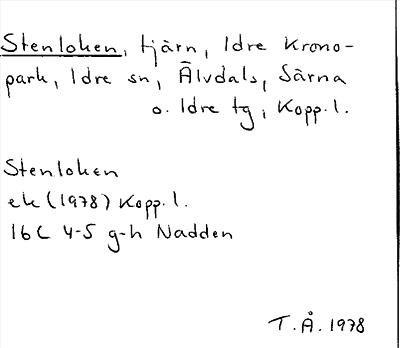 Stenloken, tjärn, Idre Krono-
park, Idre sn, Älvdals, Särna
o. Idre tg, Kopp. l.
Stenloken
ek (1978) Kopp. l.
16C 4-5 g-h Nadden
T. Å. 1978